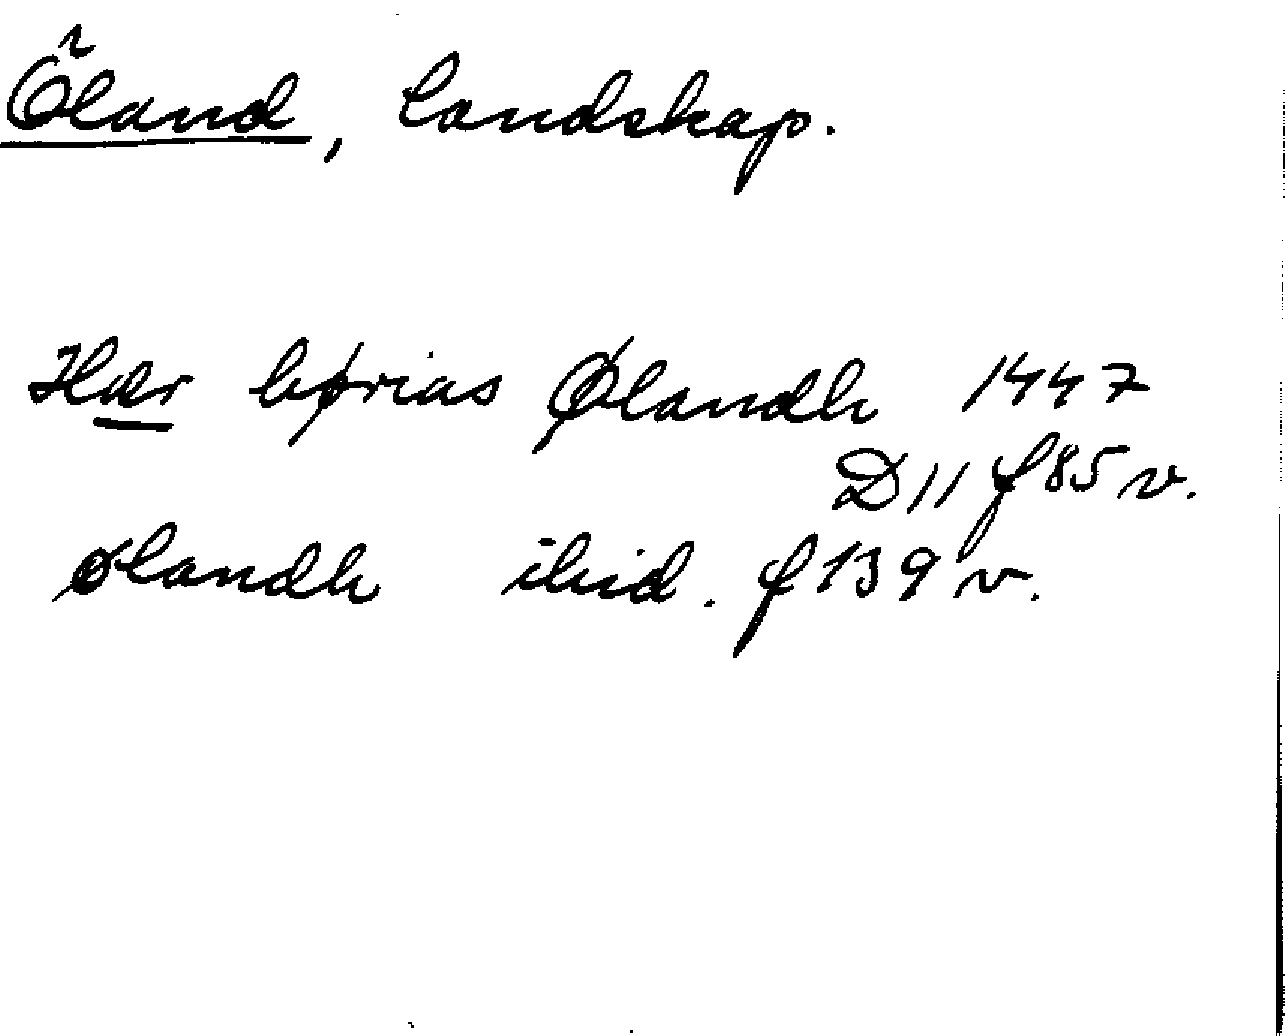 Öland, landskap.
Hær børias Ølandh 1447
D 11 f 85 v.
ølandh ibid. f 139 v.